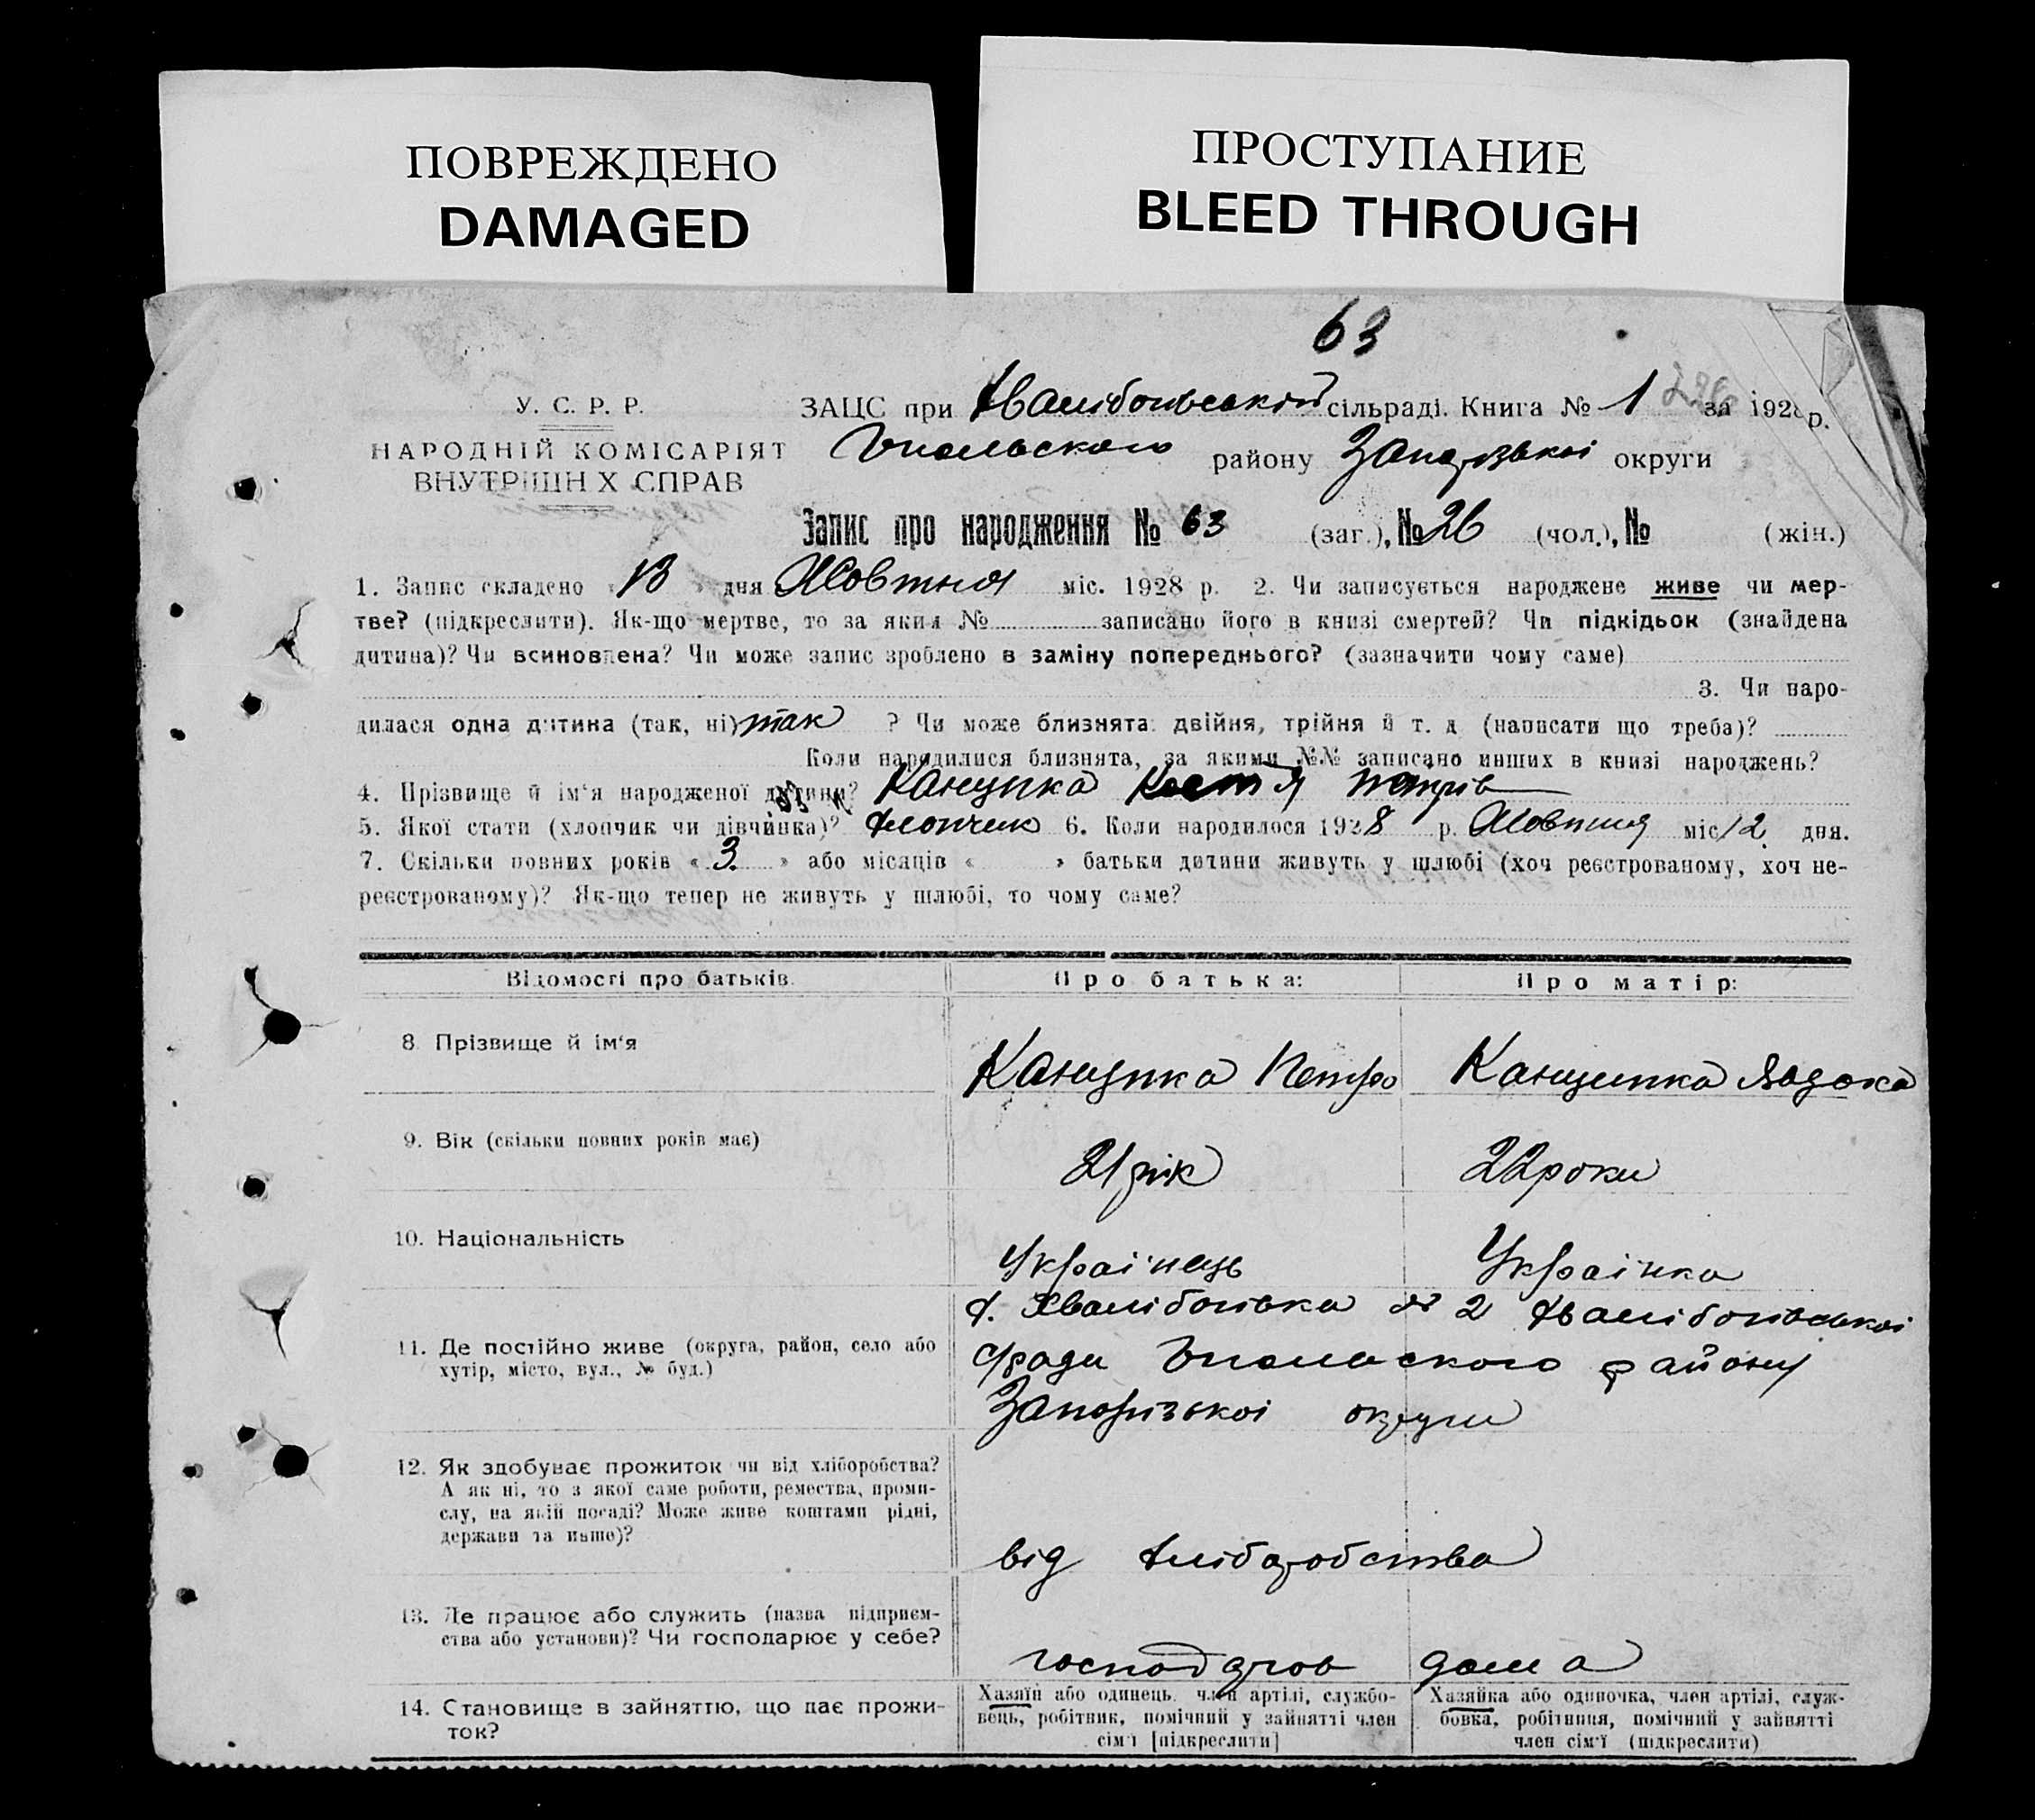 ПОВРЕЖДЕНО
DAMAGED
ПРОСТУПАНИЕ
BLEED THROUGH
63
У. С. Р. Р.
НАРОДНІЙ КОМІСАРІЯТ
ВНУТРІШН Х СПРАВ
ЗАЦС при сільраді. Книга № 1 за 1928 р.
району округи
Запис про народження № 63 (заг.), № 26 (чол.), № (жін.)
1. Запис складено « 13 » дня Жовтня міс. 1928 р. 2. Чи записується народжене живе чи мер-
тве? (підкреслити). Як-що мертве, то за яким № записано його в книзі смертей? Чи підкідьок (знайдена
дитина)? Чи всиновлена? Чи може запис зроблено в заміну попереднього? (зазначити чому саме)
3. Чи наро-
дилася одна дитина (так, ні) так ? Чи може близнята: двійня, трійня й т. д. (написати що треба)?
Коли народилися близнята, за якими №№ записано инших в книзі народжень?
4. Прізвище й ім'я народженої дитини? Канцупка Костя петрів
5. Якої стати (хлопчик чи дівчинка)? Хлопчик 6. Коли народилося 1928 р. Жовтня міс 12 дня.
7. Скільки повних років « 3 » або місяців « » батьки дитини живуть у шлюбі (хоч реєстрованому, хоч не-
реєстрованому)? Як-що тепер не живуть у шлюбі, то чому саме?
Відомості про батьків
Про батька:
Про матір:
8. Прізвище й ім'я
Петро
9. Вік (скільки повних років має)
21 рік
22 роки
10. Національність
Українець
Українка
11. Де постійно живе (округа, район, село або
хутір, місто, вул., № буд.)
Х. Хвалібогівка № 2 Хвалібогівської
с/ради району
Запорізької округи
12. Як здобуває прожиток чи від хліборобства?
А як ні, то з якої саме роботи, ремества, проми-
слу, на якій посаді? Може живе коштами рідні,
держави та инше)?
від хліборобства
13. Де працює або служить (назва підприєм-
ства або установи)? Чи господарює у себе?
дома
14. Становище в зайняттю, що дає прожи-
ток?
Хазяїн або одинець, член артілі, службо-
вець, робітник, помічний у зайнятті член
сім'ї [підкреслити]
Хазяйка або одиночка, член артілі, служ-
бовка, робітниця, помічний у зайнятті
член сім'ї (підкреслити)